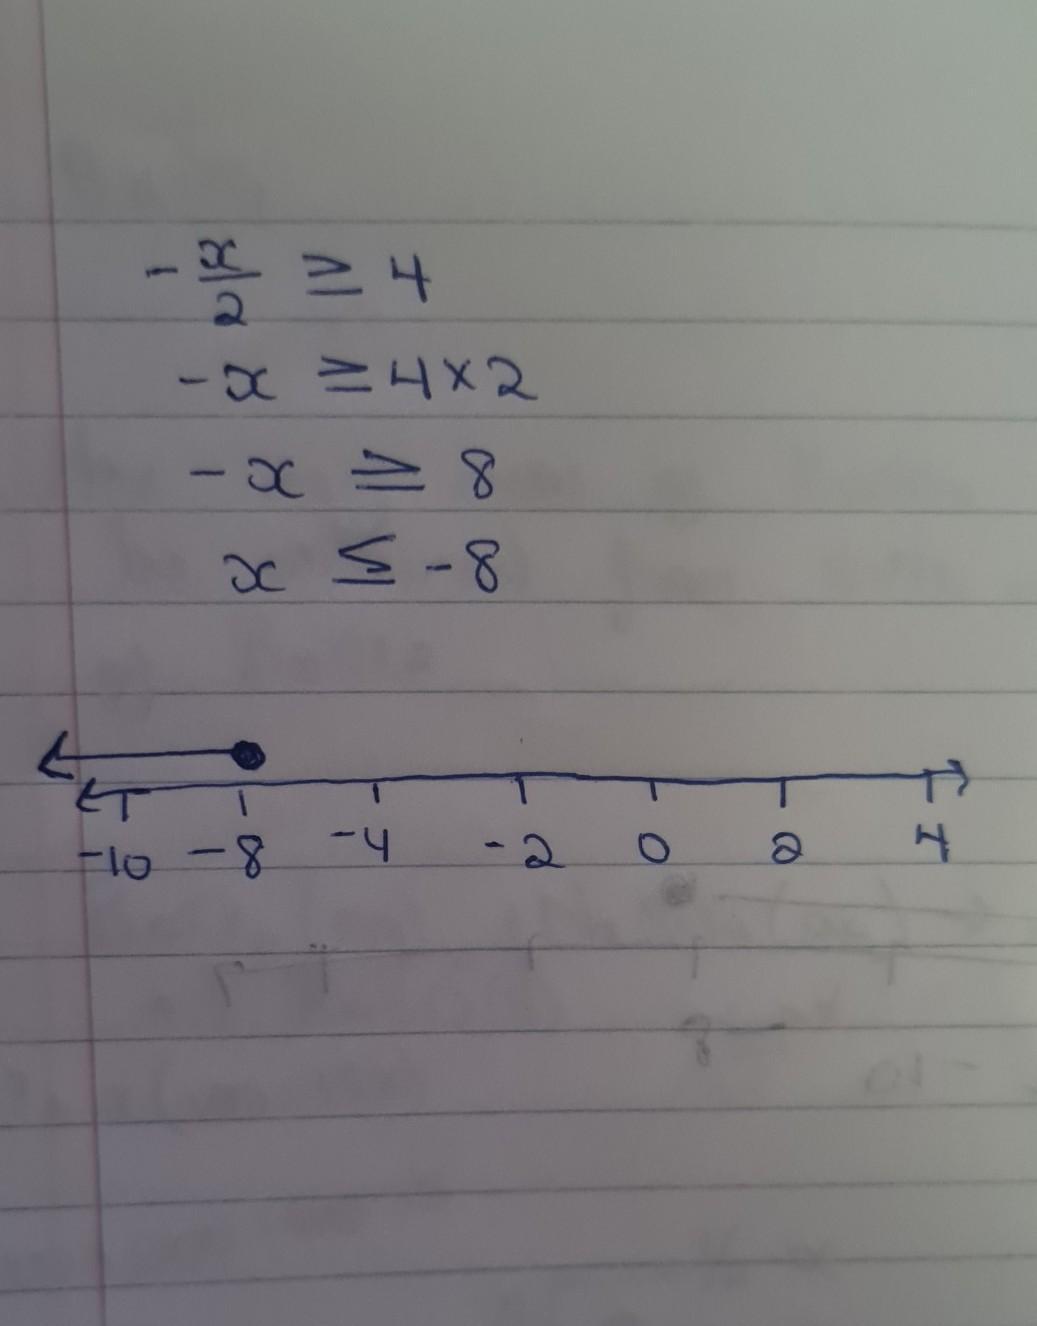 -x/2 ≥ 4
-x ≥ 4×2
-x ≥ 8
x ≤ -8
-10 -8 -4 -2 0 2 4